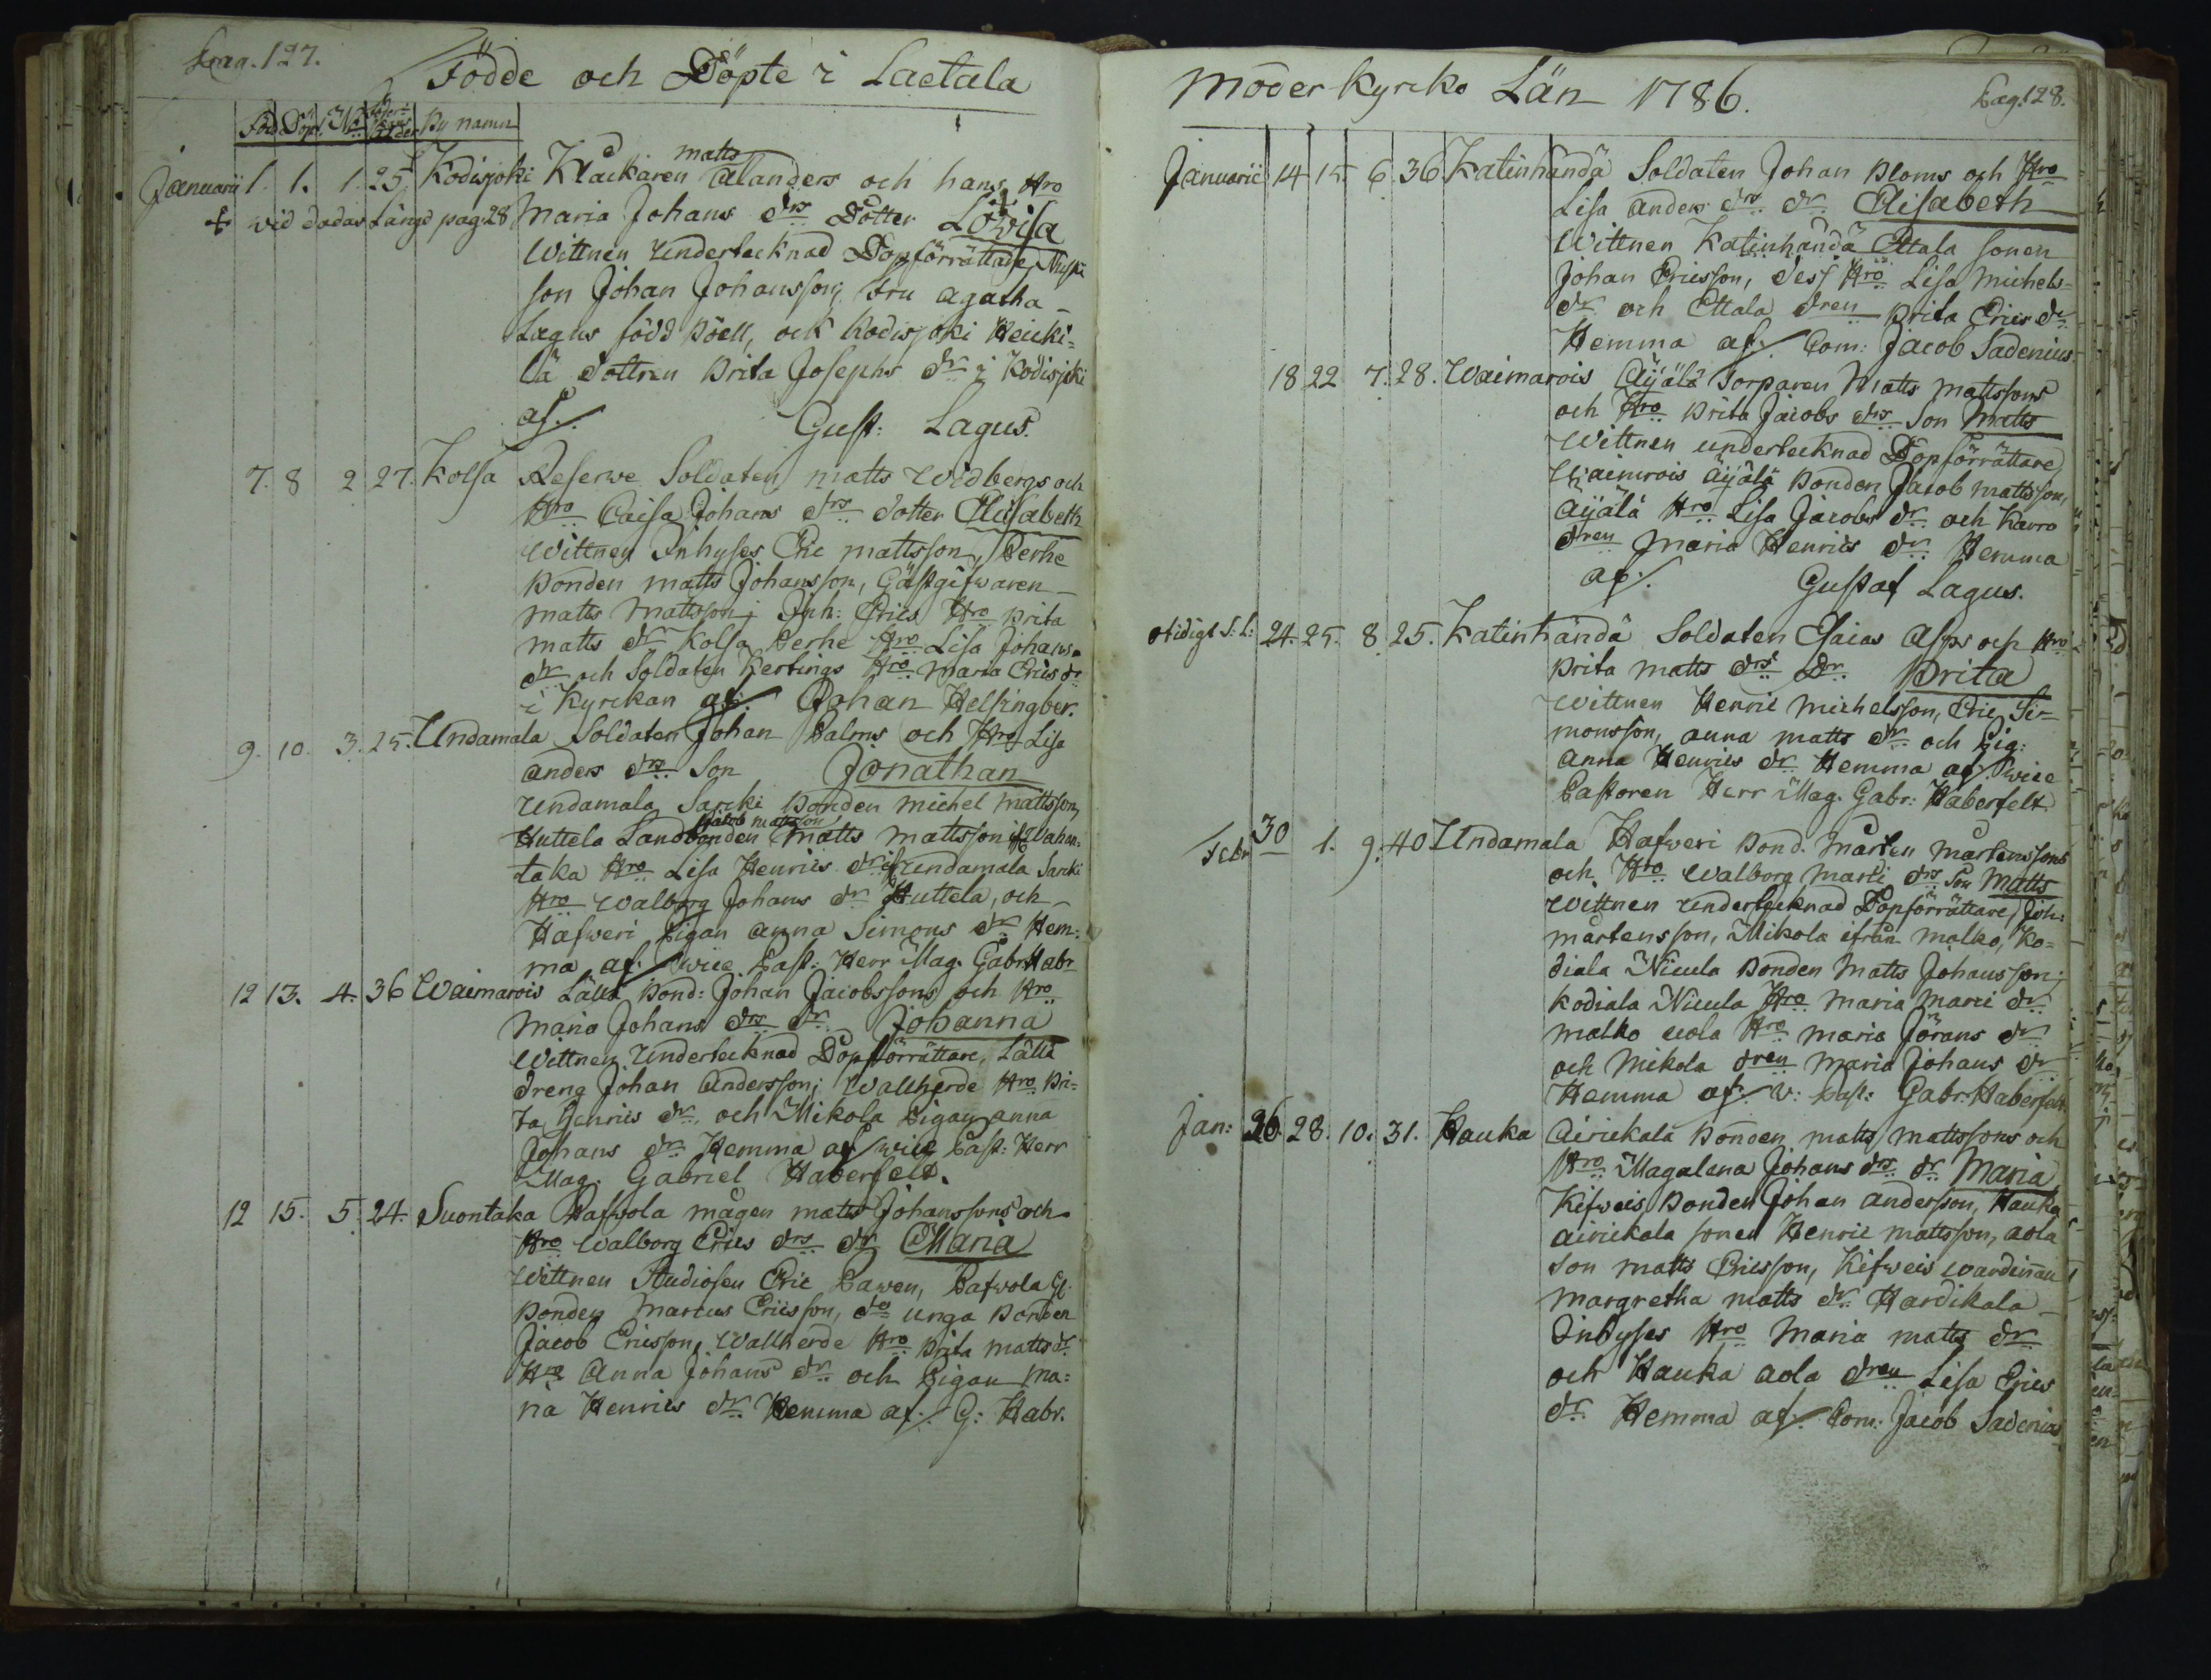 Pag. 127.
Födde och Döpte i Laetala
Föd. Döpt. No Ålder By namn
Januarii 1. 1. 1. 25. Kodisjoki Klåckaren matts Alanders och hans Hro
wid dödas Längd pag. 28 Maria Johans drs Dotter Lovisa
Wittnen Undertecknad Dopförrättare,
son Johan Johansson, Fru Agatha
Lagus föddBöell, och Kodisjoki Heicki-
lä dottren Brita Josephs dr i Kodisjoki
af.
Gust: Lagus.
7. 8 2 27. Kolsa Reserwe Soldaten matts Widbergs och
Hro Caisa Johans drs dotter Elisabeth
Wittnen Inhyses Eric mattsson, Perhe
Bonden matts Johansson, Gästgifwaren
matts Mattsson; Inh: Erics Hro Brita
matts dr Kolsa Perhe Hro Lisa Johans
dr och Soldaten Kertings Hro Maria Erics dr
i Kyrckan af. Johan Helsingber.
9. 10. 3. 25. Undamala Soldaten Johan Palms och Hro Lisa
anders drs Son Jonathan
Undamala Sarcki Bonden Michel Mattsson,
Jacob mattsson
Huttela Landbonden Matts mattsson if. Wahan-
taka Hro Lisa Henrics dr if Undamala Sarcki
Hro Walborg Johans dr Huttela, och
Hafweri Pigan Anna Simons dr Hem-
ma af. wice Past: Herr Mag. Gabr. Habr
12 13. 4. 36 Waimarois Lälla Bond: Johan Jacobssons och Hro
Maria Johans drs dr Johanna
Wittnen Undertecknad Dopförrättare, Lälla
dreng Johan Andersson; Wallherde Hro Bri-
ta Henrics dr, och Mikola Pigan Anna
Johans dr. Hemma af wice Past: Herr
Mag. Gabriel Haberfelt.
12 15. 5. 24. Suontaka Pafwola mågen matts Johanssons och
Hro Walborg Erics drs dr Maria
Wittnen Studiosen Eric Pawen, Pafwola Gl.
Bonden Marcus Ericsson, do unga Bonden
Jacob Ericsson, Wallherde Hro Brita matts dr
Hro Anna Johans dr och Pigan Ma-
ria Henrics dr. Hemma af. G: Habr.
Moder Kyrcko Län 1786.
Pag. 128.
Januarii 14 15. 6. 36 Katinhändä Soldaten Johan Bloms och Hro
Lisa anders drs dr Elisabeth
Wittnen Katinhändä Ettala sonen
Johan Ericsson, dess Hro Lisa Michels-
dr och Ettala dren Brita Erics dr
Hemma af. Com: Jacob Sadenius
18 22 7. 28. Waimarois Äijälä Torparen Matts mattssons
och Hro Brita Jacobs drs Son Matts
Wittnen undertecknad Dopförrättare,
Waimrois Äijälä Bonden Jacob mattsson,
Äijälä Hro Lisa Jacobs dr och Karro
dren Maria Henrics dr Hemma
af.
Gustaf Lagus.
otidigt S. L: 24. 25. 8. 25. Katinhändä Soldaten Esaias Asps och Hro
Brita matts drs dr. Brita
Wittnen Henric Michelsson, Eric Si-
monsson, anna matts dr och Pig:
Anna Henrics dr Hemma af. wice
Pastoren Herr Mag. Gabr: Haberfelt
Febr 30 1. 9. 40 Undamala Hafweri Bond. Mårten Mårtenssons
och Hro Walborg Marci drs Son Matts
Wittnen Undertecknad Dopförrättare, Joh:
mårtensson, Mikola ifrån Malko, Ko-
diala Nicula Bonden Matts Johansson;
Kodiala Nicula Hro Maria Marci dr
malko uola Hro Maria Jörans dr
och Mikola dren Maria Johans dr
Hemma af. V: Past: Gabr. Haberfelt
Jan: 26. 28. 10. 31. Hauka Airickala Bonden matts mattssons och
Hro Magalena Johans drs dr Maria
Kifweis Bonden Johan Andersson, Hauka
airickala sonen Henric mattsson, aola
Son matts Ericsson, Kifweis wardinnan
Margretha matts dr. Hardikala
Inhyses Hro Maria matts dr
och Hauka aola dren Lisa Erics
dr. Hemma af. Com: Jacob Sadenius